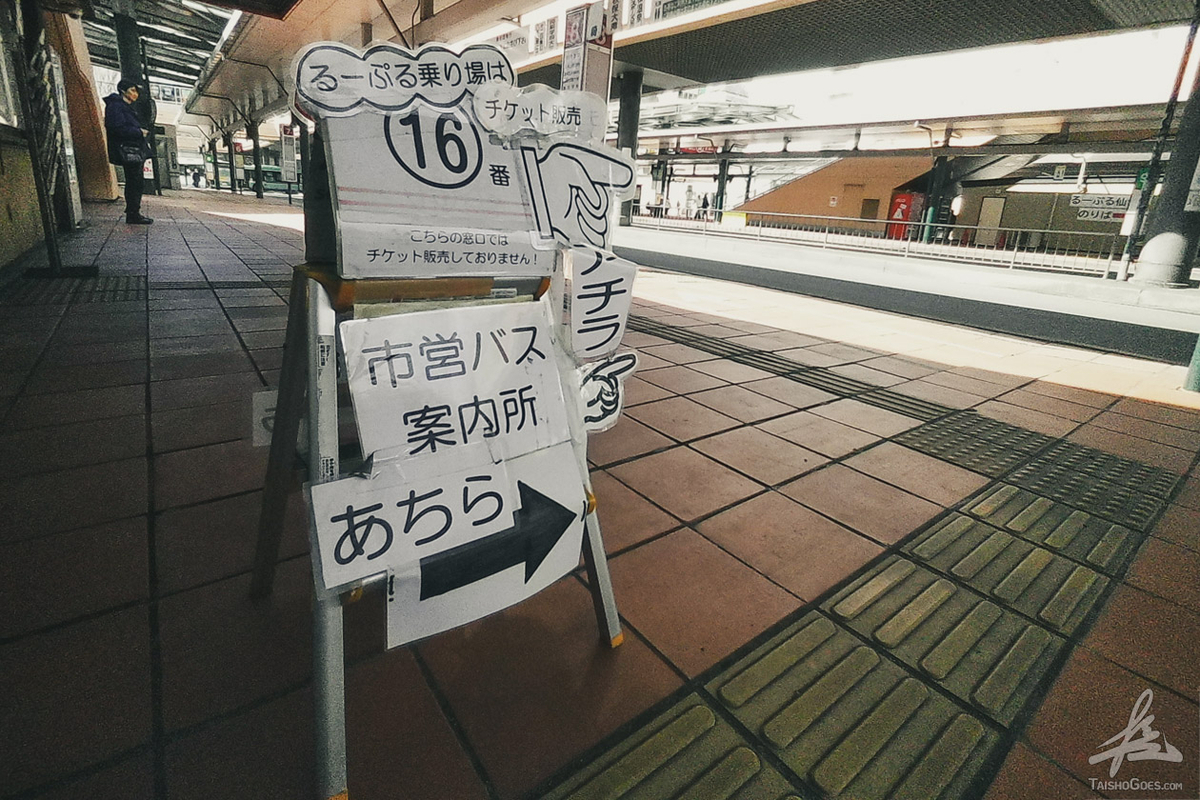 るーぷる乗り場は
チケット販売
16
番
こちらの窓口では
チケット販売しておりません！
チラ
市営バス
案内所
あちら
るーぷる仙
のりば
TAISHOGOES.COM